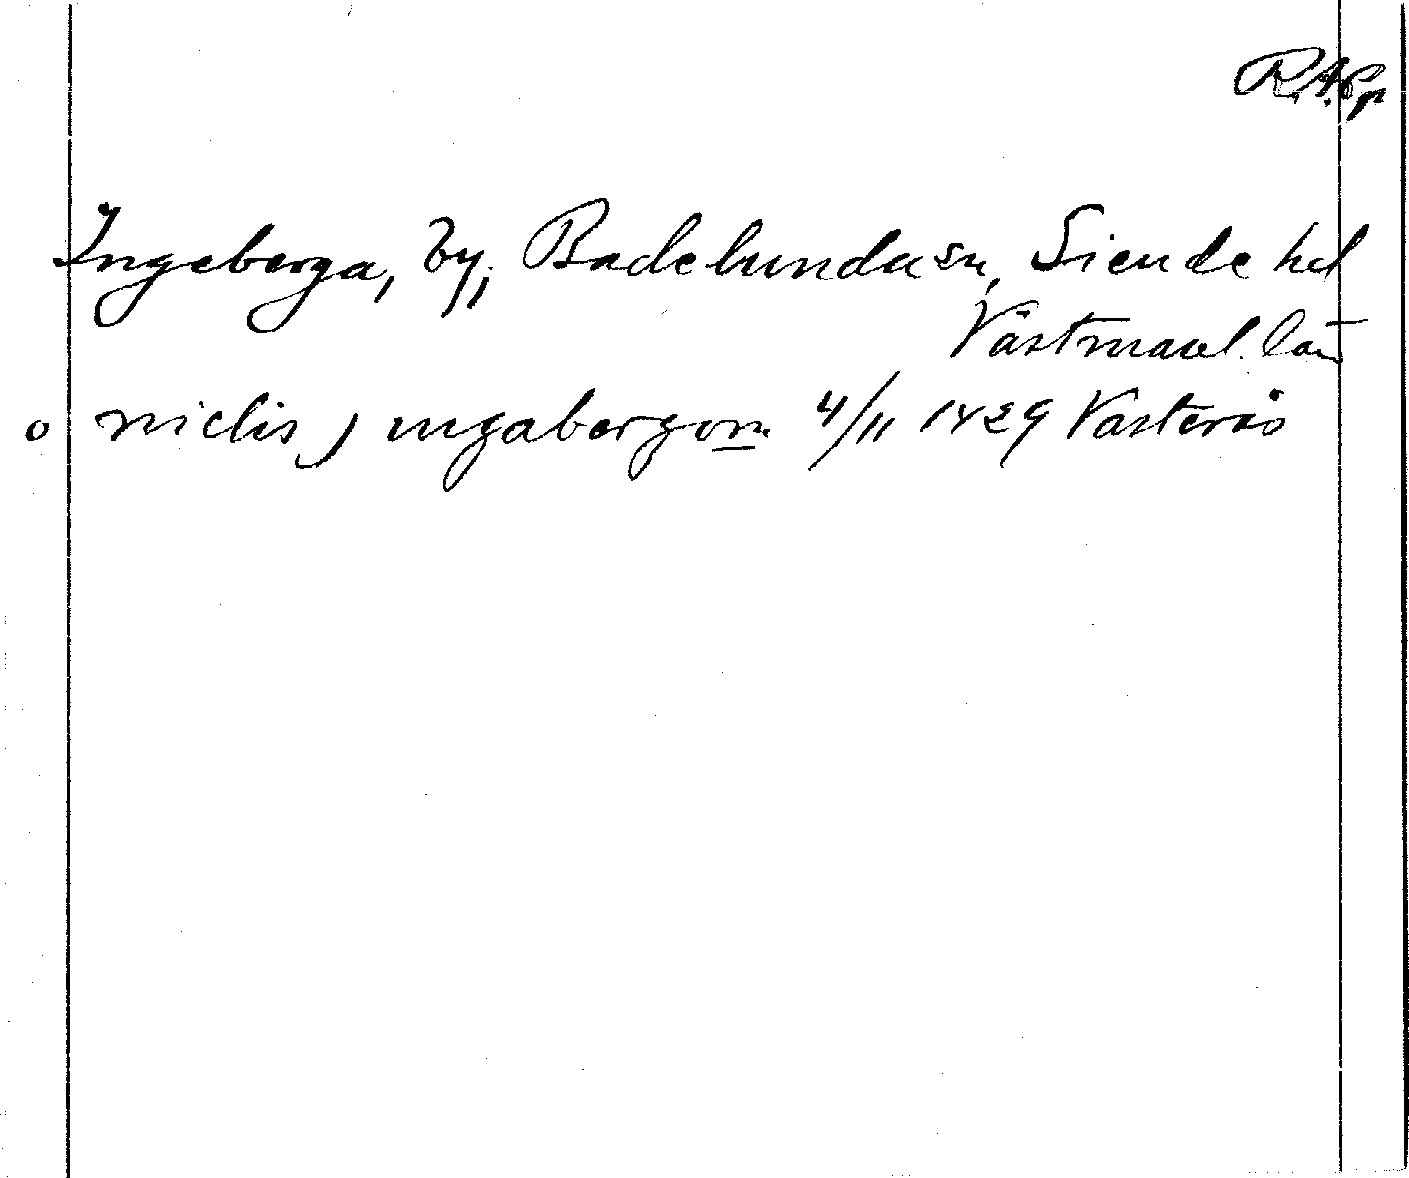 R.A.Pp
Ingeberga, by, Badelunda sn, Siende hd
Västmanl. län
o niclis j ingabergom 4/11 1429 Västerås